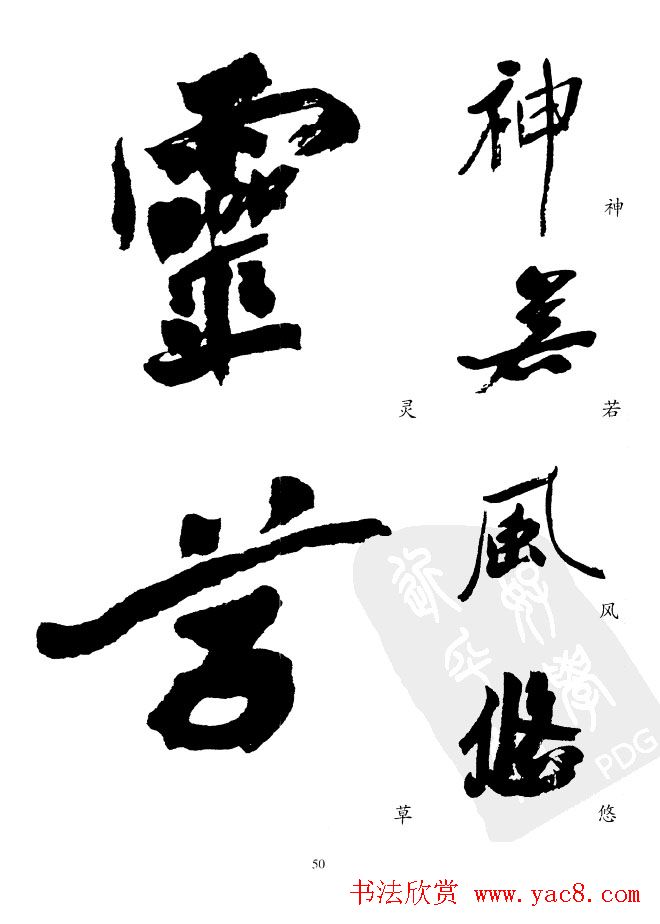 神
神
若
若
靈
灵
風
风
悠
悠
草
草
PDG
50
书法欣赏 www.yac8.com